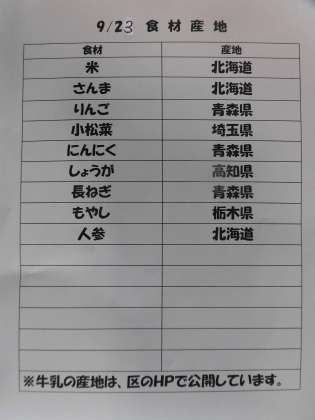 9/23 食材産地
食材 産地
米 北海道
さんま 北海道
りんご 青森県
小松菜 埼玉県
にんにく 青森県
しょうが 高知県
長ねぎ 青森県
もやし 栃木県
人参 北海道
※牛乳の産地は、区のHPで公開しています。